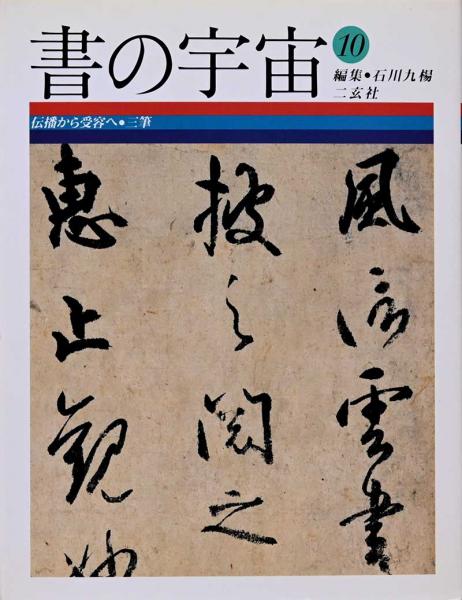 書の宇宙
10
編集●石川九楊
二玄社
伝播から受容へ●三筆
風信雲書
披之閲之
恵止観妙